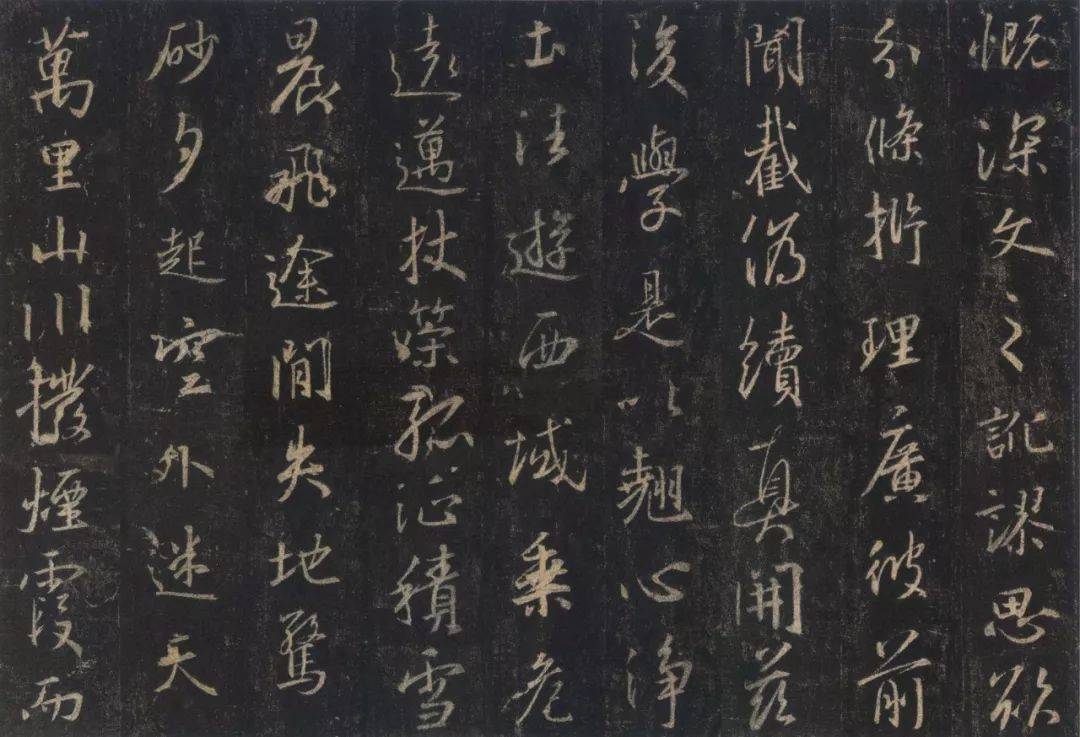 慨深文之訛謬思欲
分條析理廣彼前
聞截偽續真開茲
後學是以翹心淨
土往遊西域乘危
遠邁杖策孤征積雪
晨飛途間失地驚
砂夕起空外迷天
萬里山川撥煙霞而